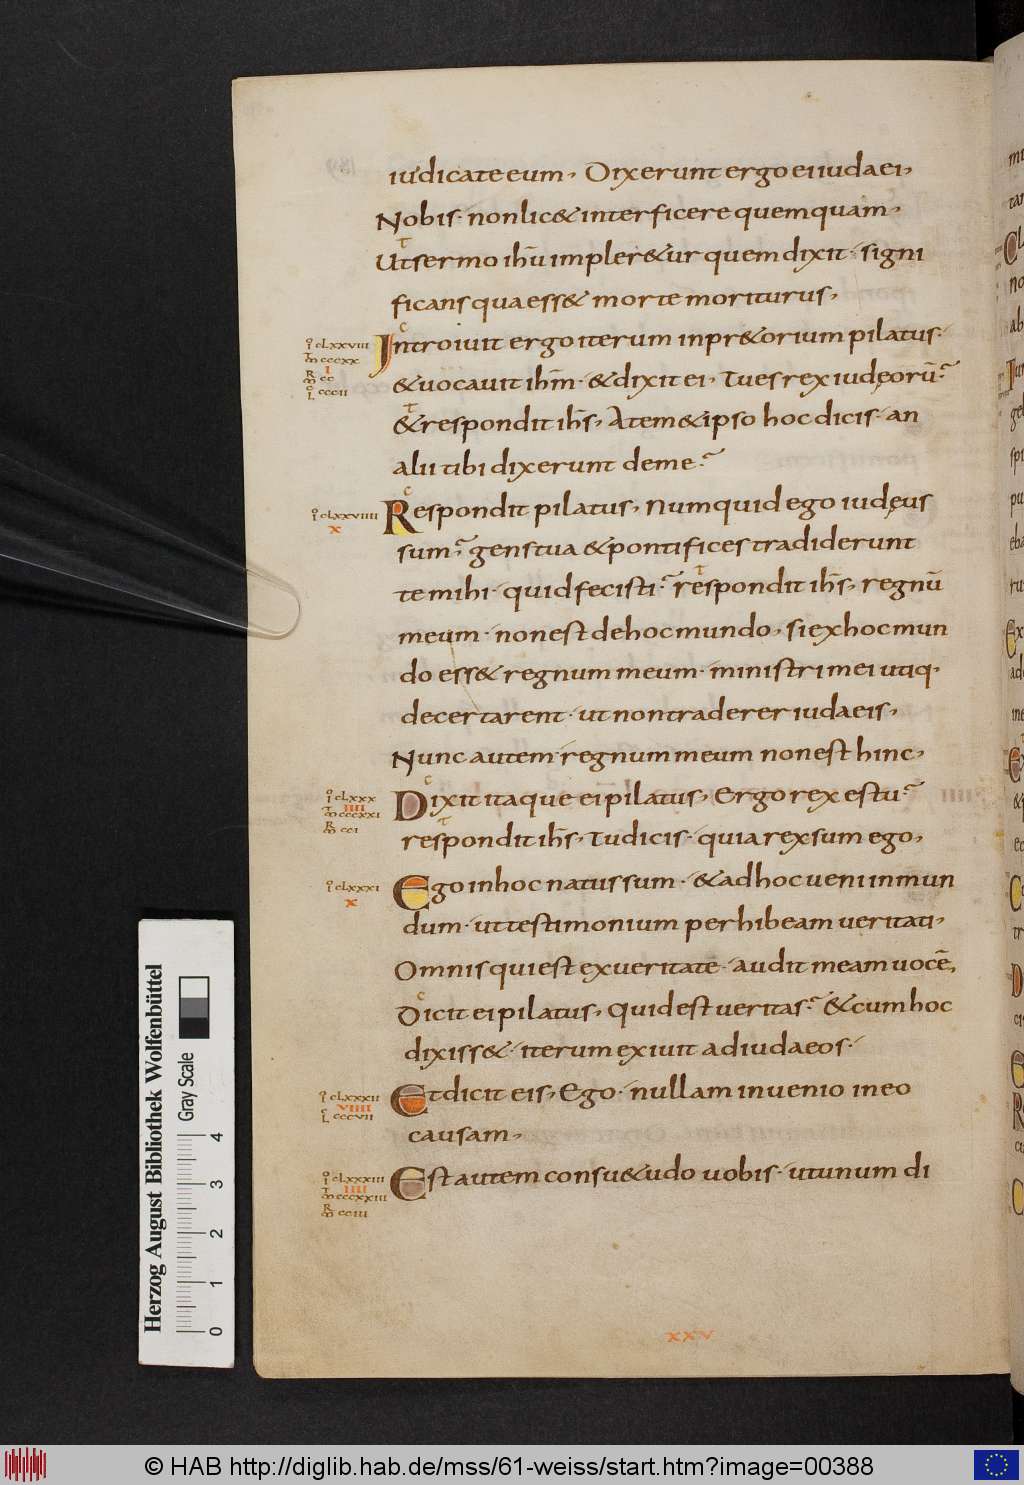 iudicate eum, Dixerunt ergo ei iudaei,
Nobis· non lic& interficere quemquam,
Ut sermo ihū impler&ur quem dixit· signi
ficans qua ess& morte moriturus,
Introiuit ergo iterum in pr&orium pilatus·
& uocauit ihm̄· & dixit ei, Tu es rex iudęorū?
& respondit ihs̄, A tem&ipso hoc dicis· an
alii tibi dixerunt de me?
Respondit pilatus, Numquid ego iudęus
sum? gens tua & pontifices tradiderunt
te mihi· quid fecisti? respondit ihs̄, regnū
meum· non est de hoc mundo, si ex hoc mun
do ess& regnum meum· ministri mei utiq·
decertarent· ut non traderer iudaeis,
Nunc autem regnum meum non est hinc,
Dixit itaque ei pilatus, Ergo rex es tu?
respondit ihs̄, Tu dicis· quia rex sum ego,
Ego in hoc natus sum· & ad hoc ueni in mun
dum· ut testimonium perhibeam ueritati,
Omnis qui est ex ueritate· audit meam uocē,
Dicit ei pilatus, Quid est ueritas? & cum hoc
dixiss&· iterum exiuit ad iudaeos·
Et dicit eis, Ego· nullam inuenio in eo
causam,
Est autem consu&udo uobis· ut unum di
clxxviii
cccxx
I
cc
cccii
clxxviiii
X
clxxx
IIII
cccxxi
cci
clxxxi
X
clxxxii
VIIII
cccvii
clxxxiii
IIII
cccxxiii
cciii
XXV
Herzog August Bibliothek Wolfenbüttel
Gray Scale
0 1 2 3 4
© HAB http://diglib.hab.de/mss/61-weiss/start.htm?image=00388